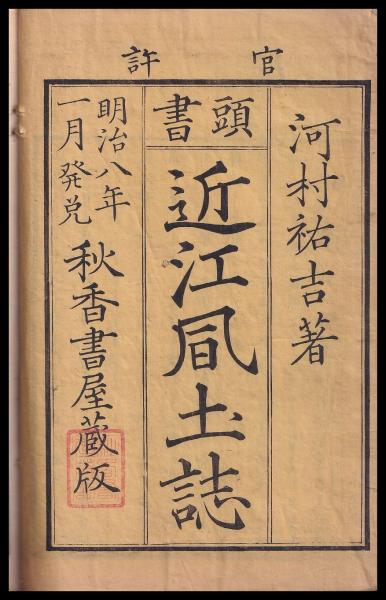 官許
河村祐吉著
頭書
近江凬土誌
明治八年
一月発兌
秋香書屋蔵版